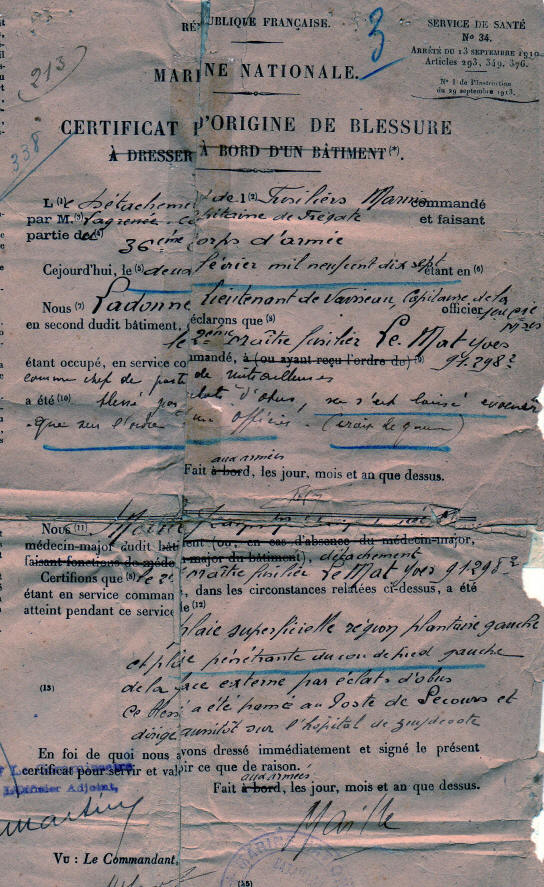 RÉPUBLIQUE FRANÇAISE.
3
SERVICE DE SANTÉ
N° 34.
ARRÊTÉ DU 13 SEPTEMBRE 1910
Articles 293, 349, 376.
N° 1 de l'Instruction
du 29 septembre 1913.
213
MARINE NATIONALE.
CERTIFICAT D'ORIGINE DE BLESSURE
338
À DRESSER À BORD D'UN BÂTIMENT (*).
L (1) e Détachement de l (2) Fusiliers Marins commandé
par M. (3) Lagrenée Capitaine de Frégate et faisant
partie de (4) 36ème Corps d'armée
Cejourd'hui, le (5) deux février mil neuf cent dix sept étant en (6)
Nous (7) Ladonne lieutenant de Vaisseau, Capitaine de la officier
en second dudit bâtiment, déclarons que (8)
le 2ème maître fusilier Le Mat Yves
91.298²
étant occupé, en service commandé, à (ou ayant reçu l'ordre de) (9)
comme chef de poste de mitrailleuses
a été (10) blessé par éclats d'obus, ne s'est laissé évacuer
que sur l'ordre d'un officier. (Croix de guerre)
aux armées
Fait à bord, les jour, mois et an que dessus.
Nous (11)
médecin-major dudit bâtiment (ou, en cas d'absence du médecin-major,
faisant fonctions de médecin-major du bâtiment), détachement
Certifions que (8) le 2e Maître fusilier Le Mat Yves 91298²
étant en service commandé, dans les circonstances relatées ci-dessus, a été
atteint pendant ce service de (12)
plaie superficielle région plantaire gauche
et plaie pénétrante du cou de pied gauche
(13) de la face externe par éclats d'obus
Ce blessé a été pansé au Poste de Secours et
dirigé aussitôt sur l'hôpital de Zuydcoote
En foi de quoi nous avons dressé immédiatement et signé le présent
certificat pour servir et valoir ce que de raison.
aux armées
Fait à bord, les jour, mois et an que dessus.
L'Officier Adjoint,
Maille
Vu : Le Commandant,
(15)